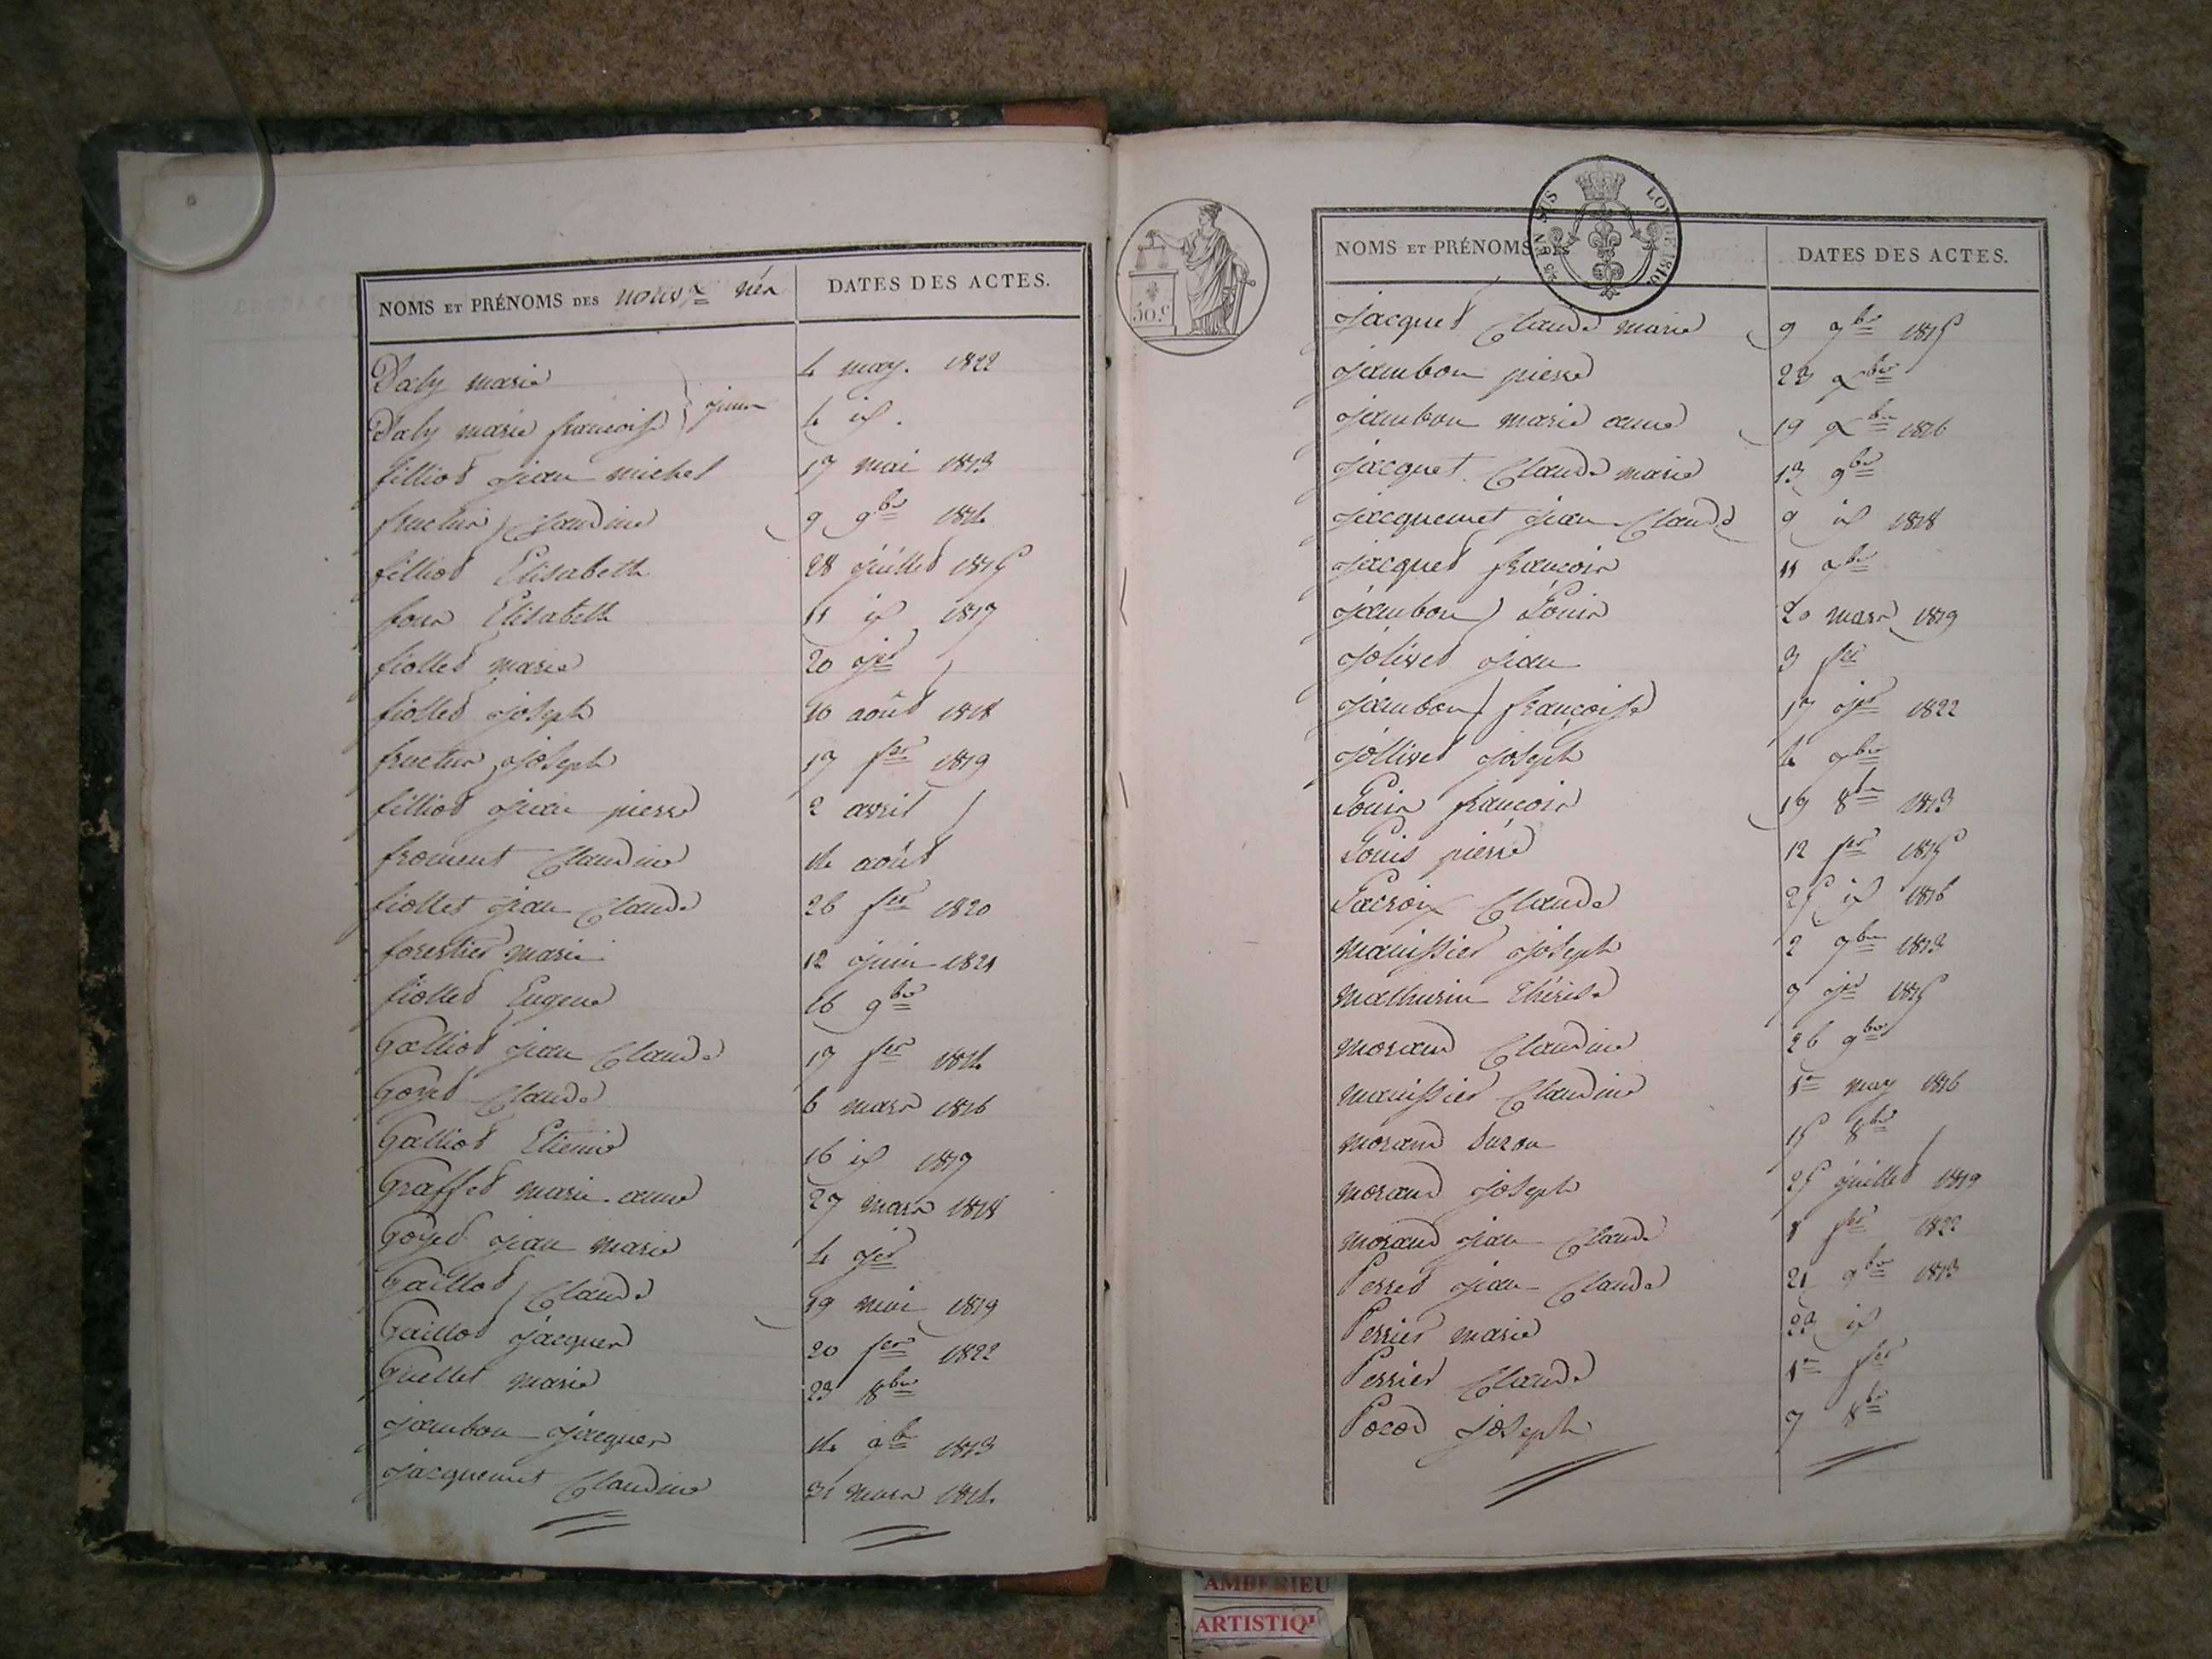 NOMS ET PRÉNOMS DES nouvx nés
DATES DES ACTES.
Daly marie 4 may. 1822
Daly marie françoise } jum 4 id.
filliod jean michel 17 mai 1813
fructus Claudine 9 9bre 1814
filliod Elisabeth 28 juillet 1815
four Elisabeth 11 id 1817
fiolled marie 20 jer
fiolled joseph 10 août 1818
fructus joseph 17 fer 1819
filliod jean pierre 2 avril
froment Claudine 14 août
fiollet jean Claude 26 fer 1820
forestier marie 12 juin 1821
fiolled Eugene 16 9bre
Galliod jean Claude 17 fer 1814
Goyed Claude 6 mars 1816
Galliod Etienne 16 id 1817
Graffed marie anne 27 mars 1818
Goyed jean marie 4 jer
Gaillod Claude 19 mai 1819
Gaillod jacques 20 fer 1822
Guellet marie 23 8bre
jambon jacques 14 9b 1813
jacquemet Claudine 31 mars 1814
50.c
NOMS ET PRÉNOMS DES
DATES DES ACTES.
jacqued Claude marie 9 7bre 1815
jambon pierre 22 xbre
jambon marie anne 19 xbre 1816
jacquet Claude marie 13 9bre
jacquemet jean Claude 9 id 1818
jacqued françois 11 7bre
jambon Louis 20 mars 1819
jolived jean 3 fer
jambon françoise 17 jer 1822
jollived joseph 4 7bre
Louis françois 19 8bre 1813
Louis pierre 12 fer 1815
Lacroix Claude 25 id 1816
manissier joseph 2 7bre 1813
mathurin thérèse 7 jer 1815
morand Claudine 26 9bre
manissier Claudine 1er may 1816
morand Suzon 15 8bre
morand joseph 25 juillet 1819
morand jean Claude 8 fer 1822
Perred jean Claude 21 9bre 1813
Perrier marie 22 id
Perrier Claude 1er fer
Pocod joseph 7 8bre
AMBERIEU
ARTISTIQU